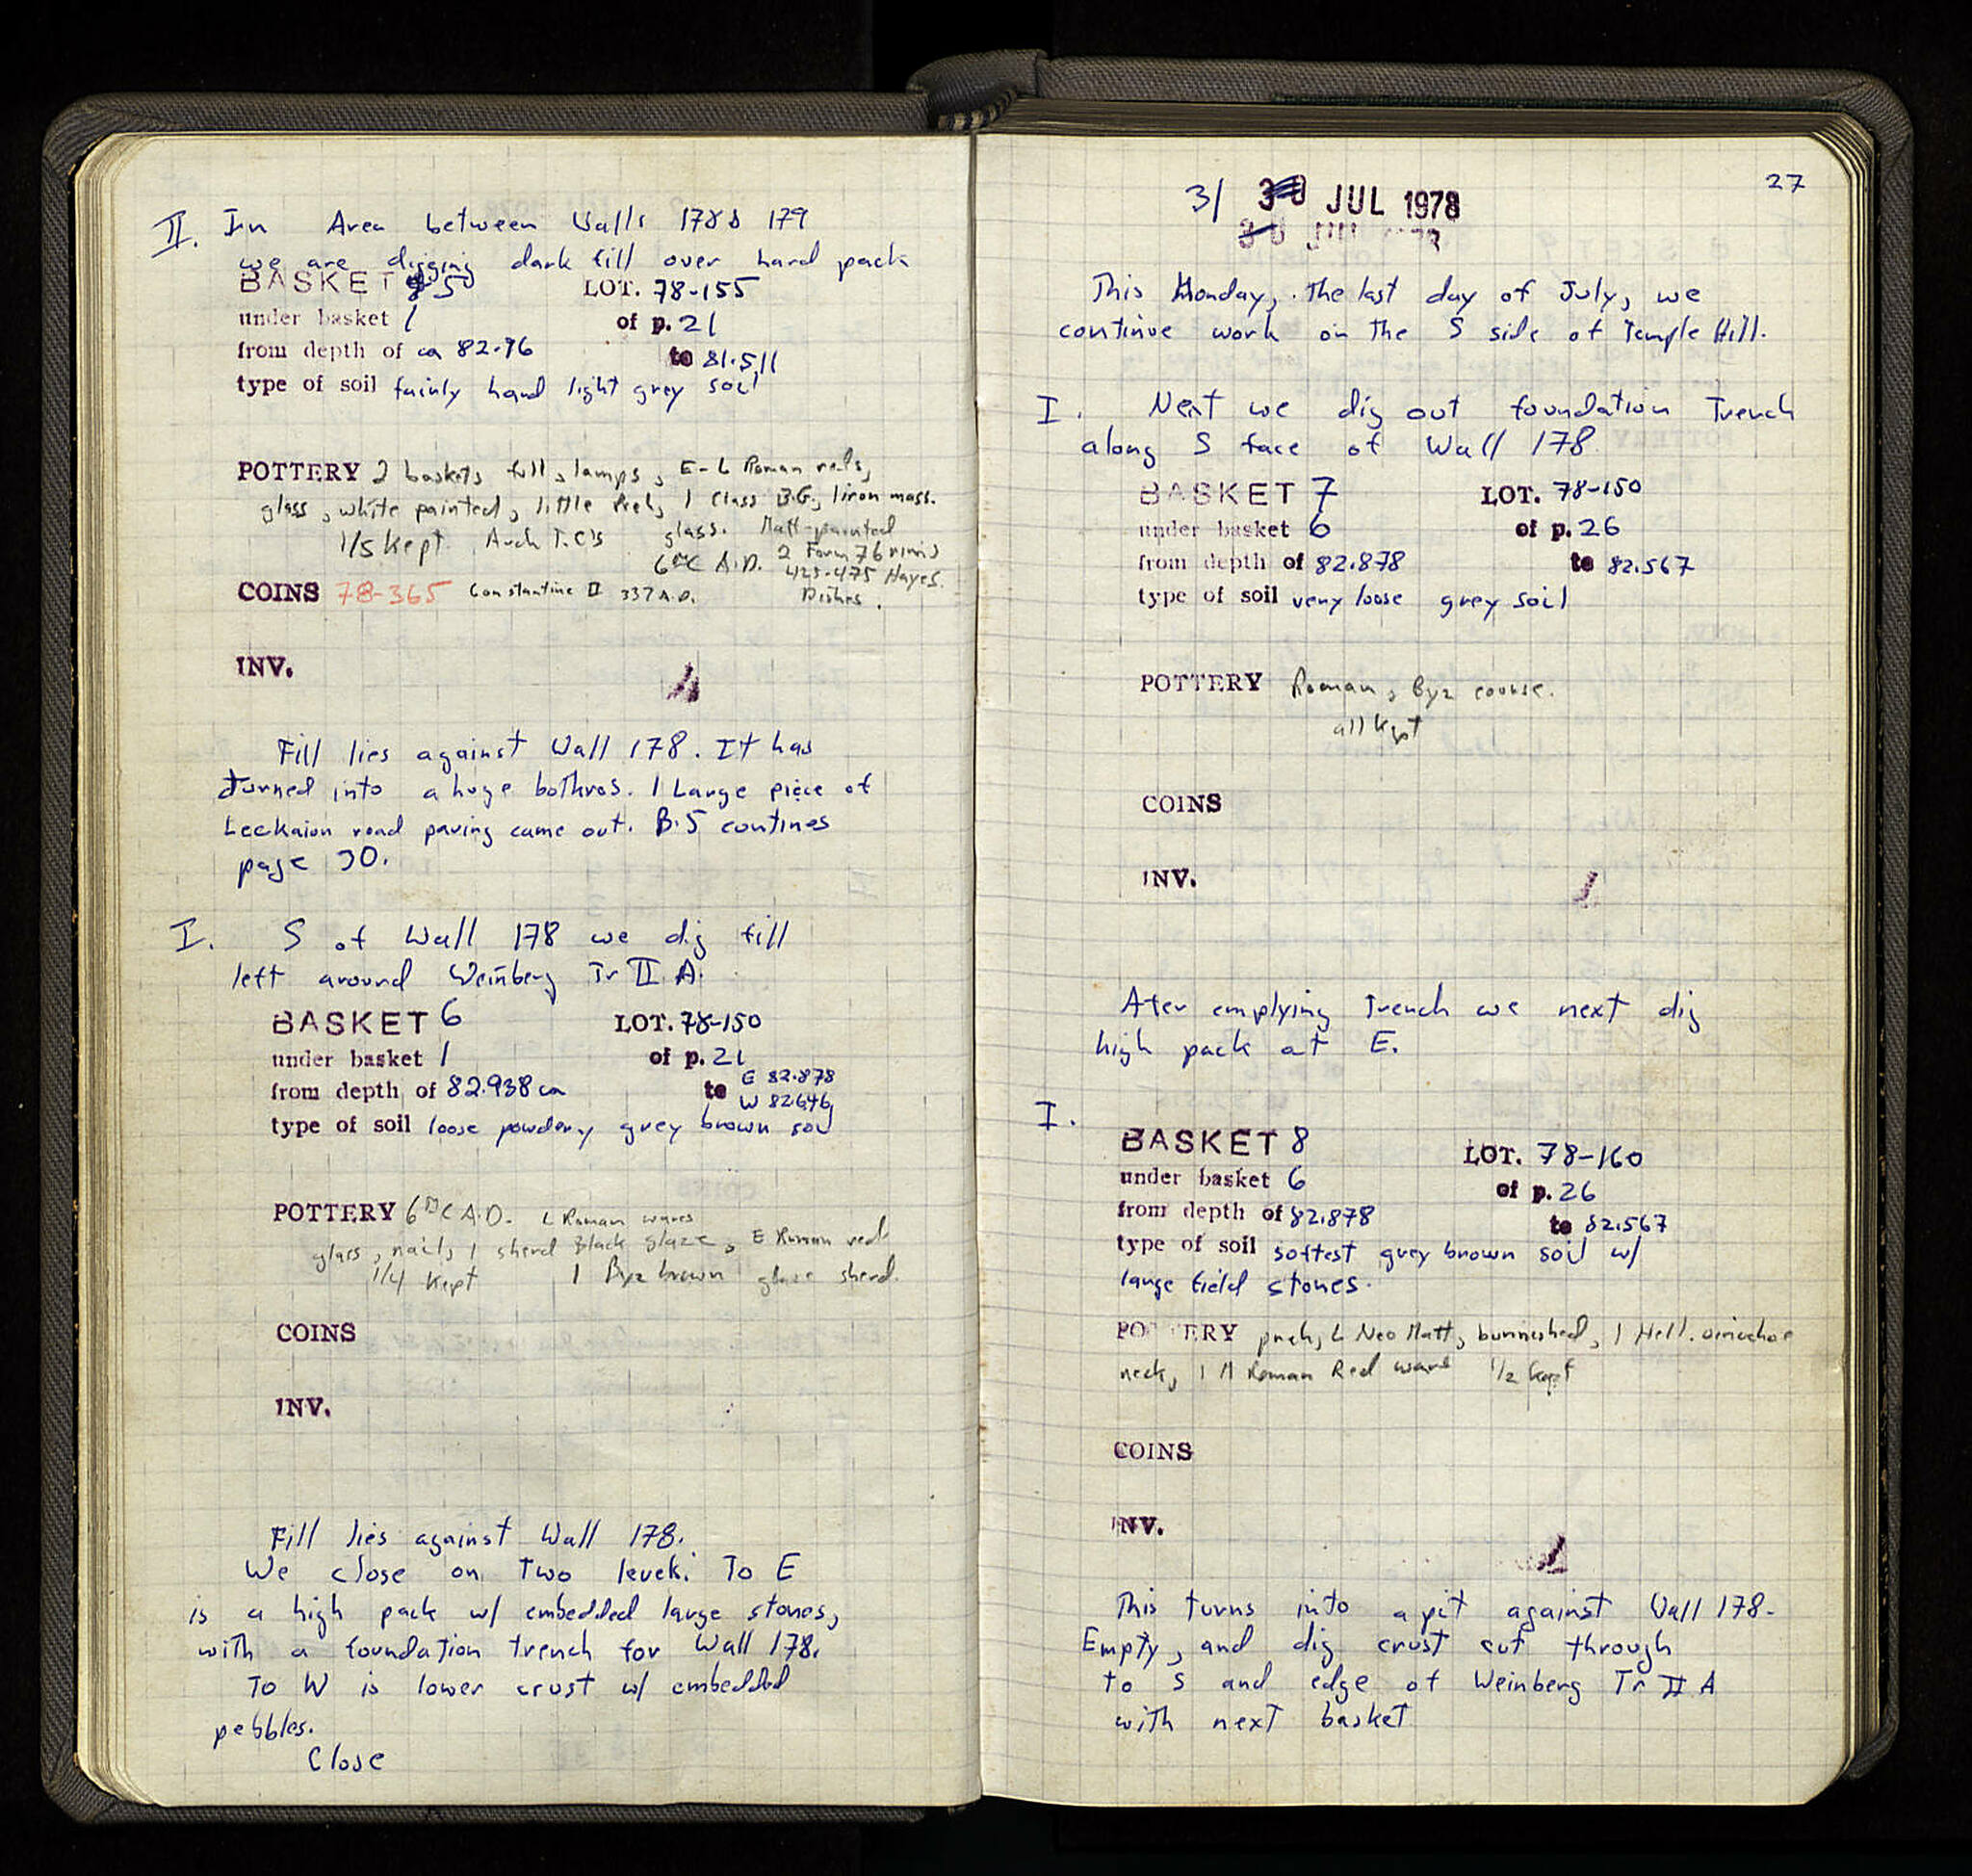 II. In Area between Walls 178 & 179
we are digging dark fill over hard pack
BASKET 5 LOT. 78-155
under basket 1 of p. 21
from depth of ca 82.76 to 81.511
type of soil fairly hard light grey soil
POTTERY 2 baskets full, lamps, E-L Roman reds,
glass, white painted, little Preh, 1 Class B.G., 1 iron mass.
1/5 kept. Arch T.C's glass. Matt-painted
6th C A.D. 2 Form 76 rims
425-475 Hayes.
COINS 78-365 Constantine II 337 A.D. Dishes.
INV.
Fill lies against Wall 178. It has
turned into a huge bothros. 1 Large piece of
Leckaion road paving came out. B.5 contines
page 30.
I. S of Wall 178 we dig fill
left around Weinberg Tr II A.
BASKET 6 LOT. 78-150
under basket 1 of p. 21
from depth of 82.938 ca to E 82.878
W 82.646
type of soil loose powdery grey brown soil
POTTERY 6th C A.D. L Roman wares
glass, nails, 1 sherd Black glaze, E Roman red
1/4 kept 1 Byz brown glaze sherd.
COINS
INV.
Fill lies against Wall 178.
We close on two levels: To E
is a high pack w/ embedded large stones,
with a foundation trench for Wall 178.
To W is lower crust w/ embedded
pebbles.
Close
27
31 30 JUL 1978
30 JUL
This Monday, the last day of July, we
continue work on the S side of Temple Hill.
I. Next we dig out foundation Trench
along S face of Wall 178
BASKET 7 LOT. 78-150
under basket 6 of p. 26
from depth of 82.878 to 82.567
type of soil very loose grey soil
POTTERY Roman, Byz course.
all kept
COINS
INV.
After emptying Trench we next dig
high pack at E.
I.
BASKET 8 LOT. 78-160
under basket 6 of p. 26
from depth of 82.878 to 82.567
type of soil softest grey brown soil w/
large field stones.
POTTERY preh, L Neo Matt, burnished, 1 Hell. oinochoe
neck, 1 M Roman Red ware 1/2 kept
COINS
INV.
This turns into a pit against Wall 178.
Empty, and dig crust cut through
to S and edge of Weinberg Tr II A
with next basket